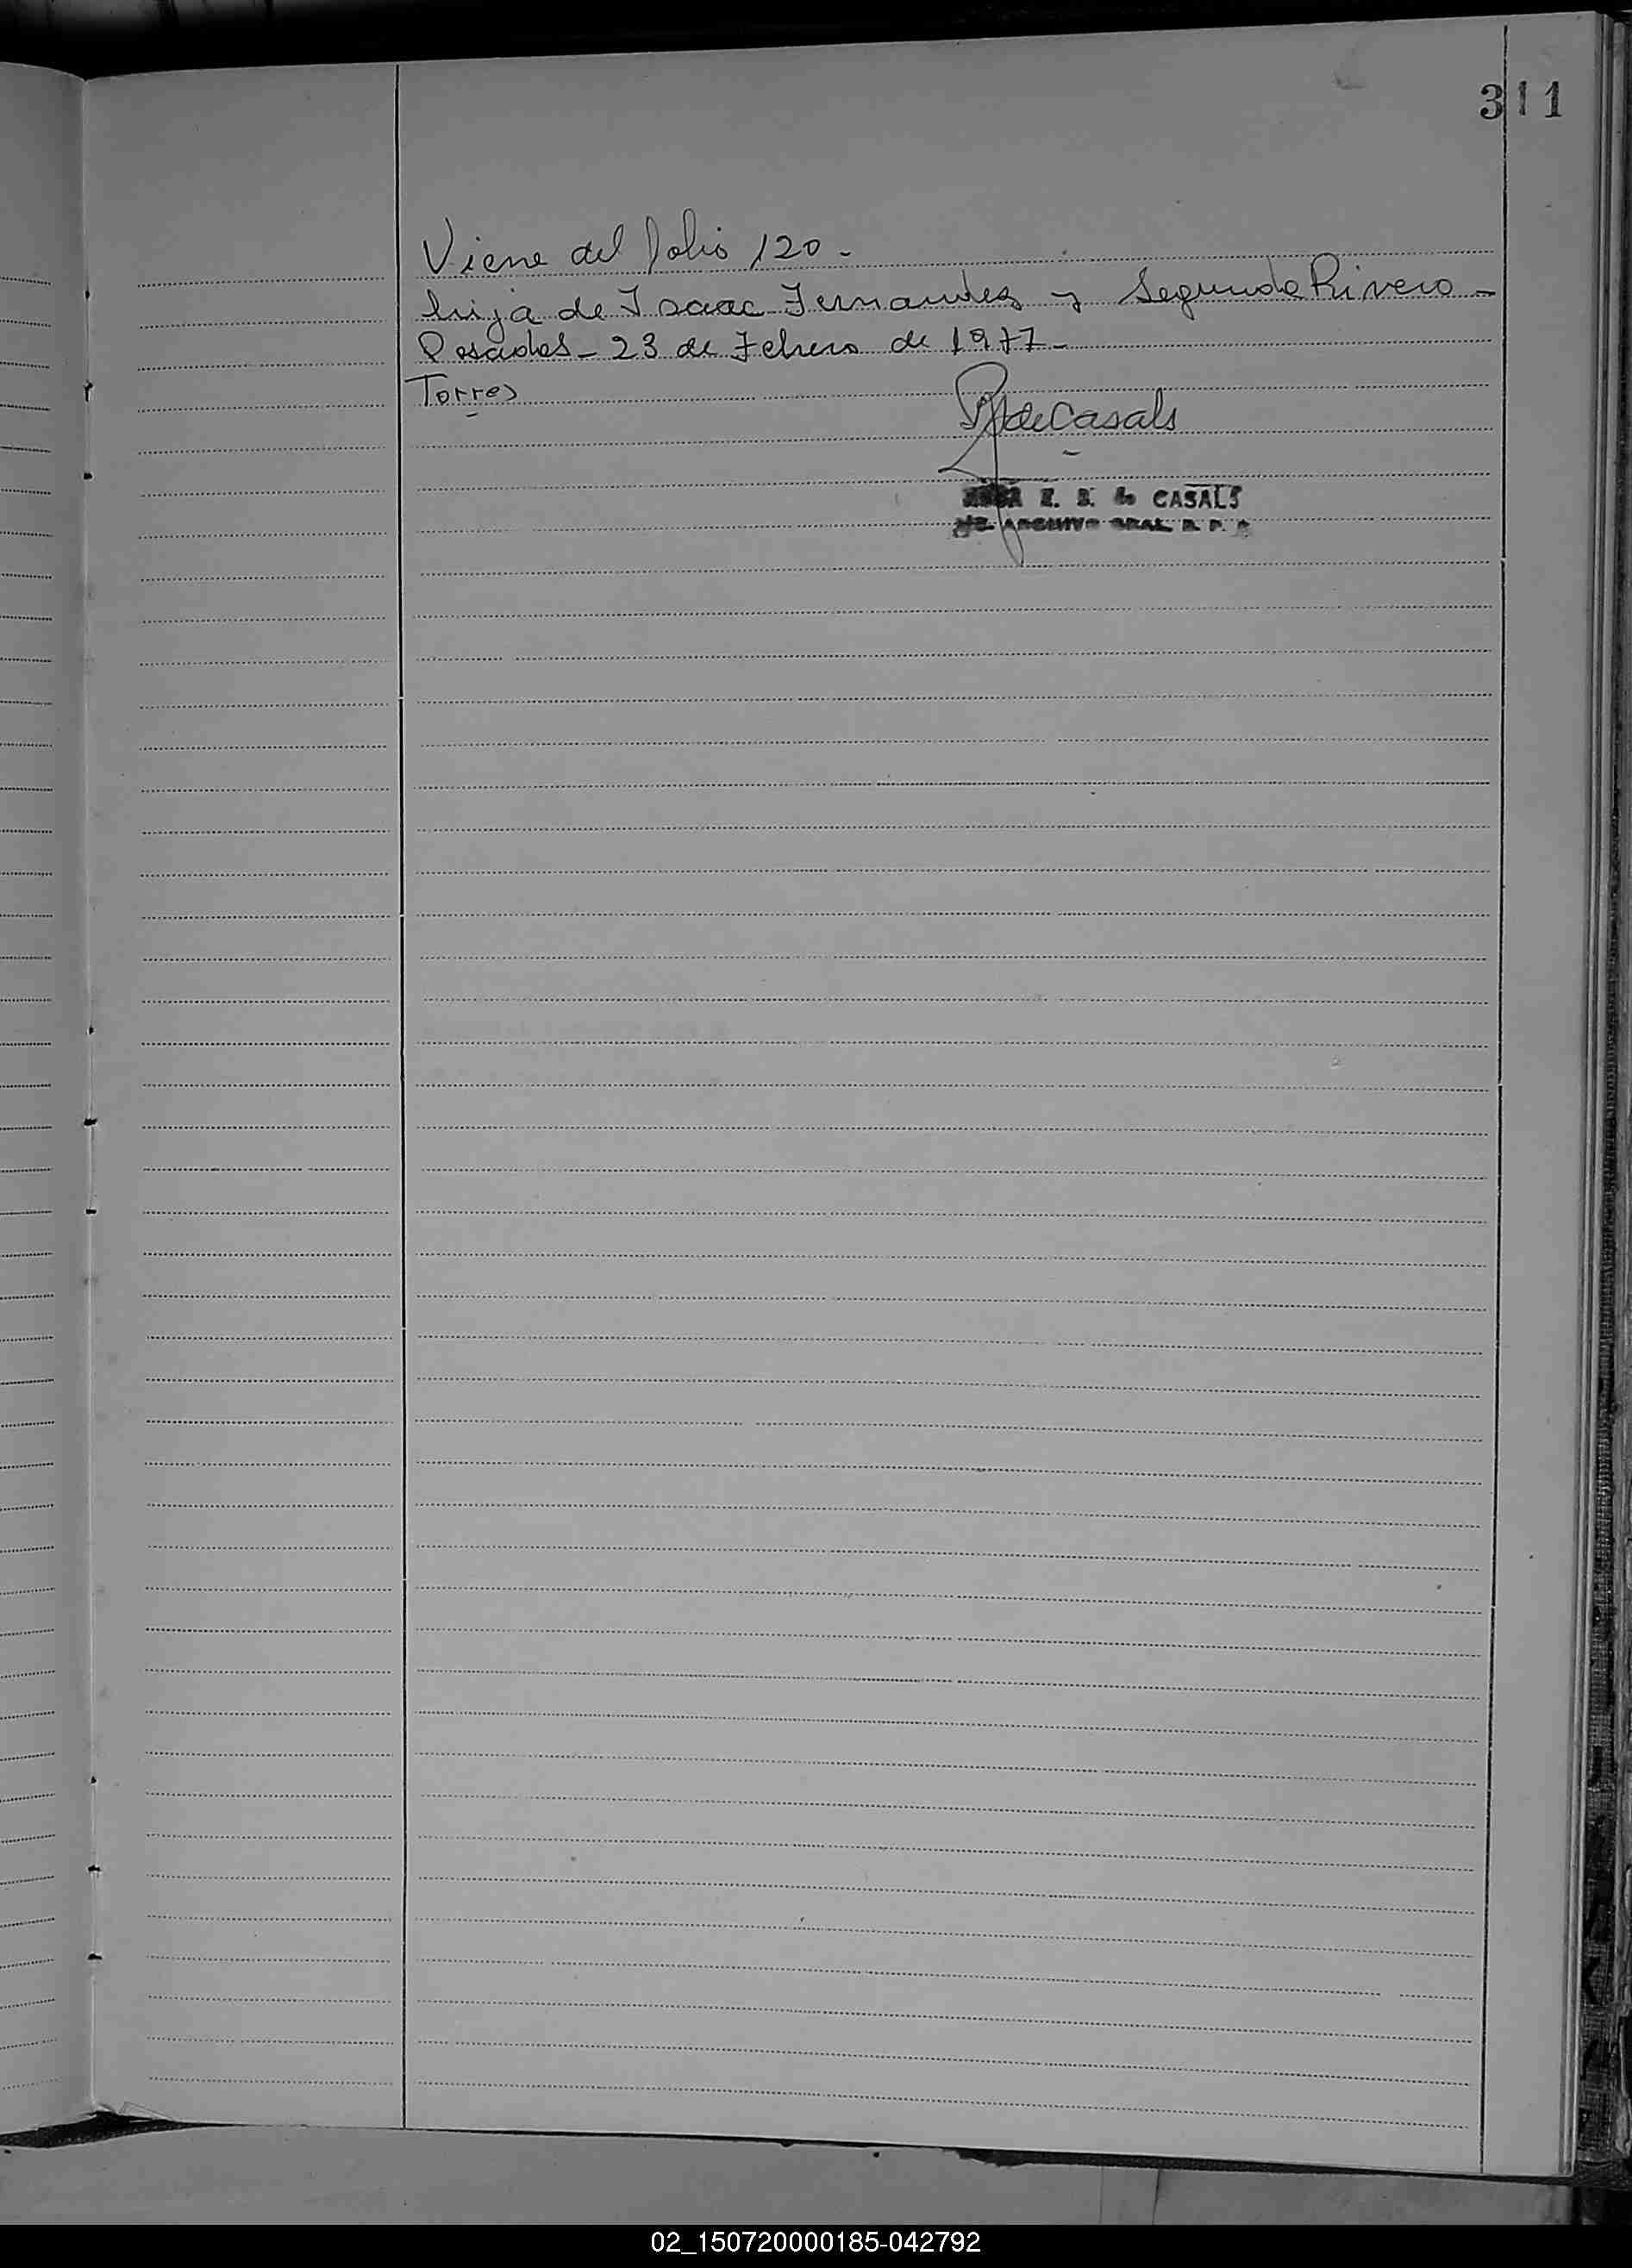 311
Viene del folio 120-
hija de Isaac Fernandez y Segunda Rivero-
Posadas- 23 de Febrero de 1977-
Torres
de Casals
E. B. de CASALS
ARCHIVO GRAL. R. P.
02_150720000185-042792